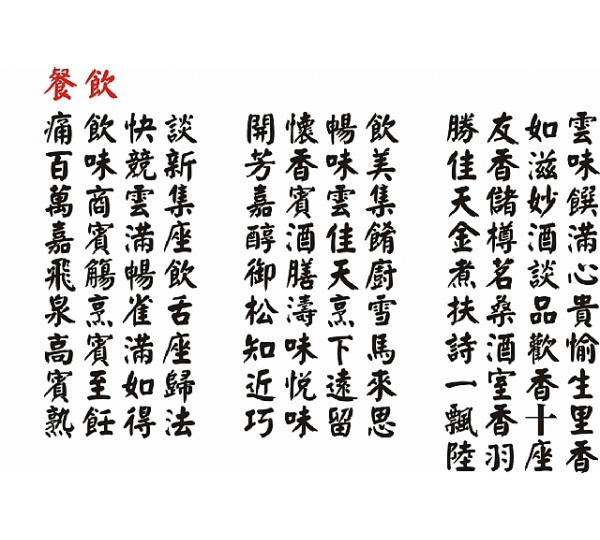 餐飲
痛飲快談
百味競新
萬商雲集
嘉賓滿座
飛觴暢飲
泉烹雀舌
高賓滿座
賓至如歸
熟飪得法
開懷暢飲
芳香味美
嘉賓雲集
醇酒佳餚
御膳天廚
松濤烹雪
知味下馬
近悅遠來
巧味留思
勝友如雲
佳香滋味
天儲妙饌
金樽酒滿
煮茗談心
扶桑品貴
詩酒歡愉
一室香生
飄香十里
陸羽座香